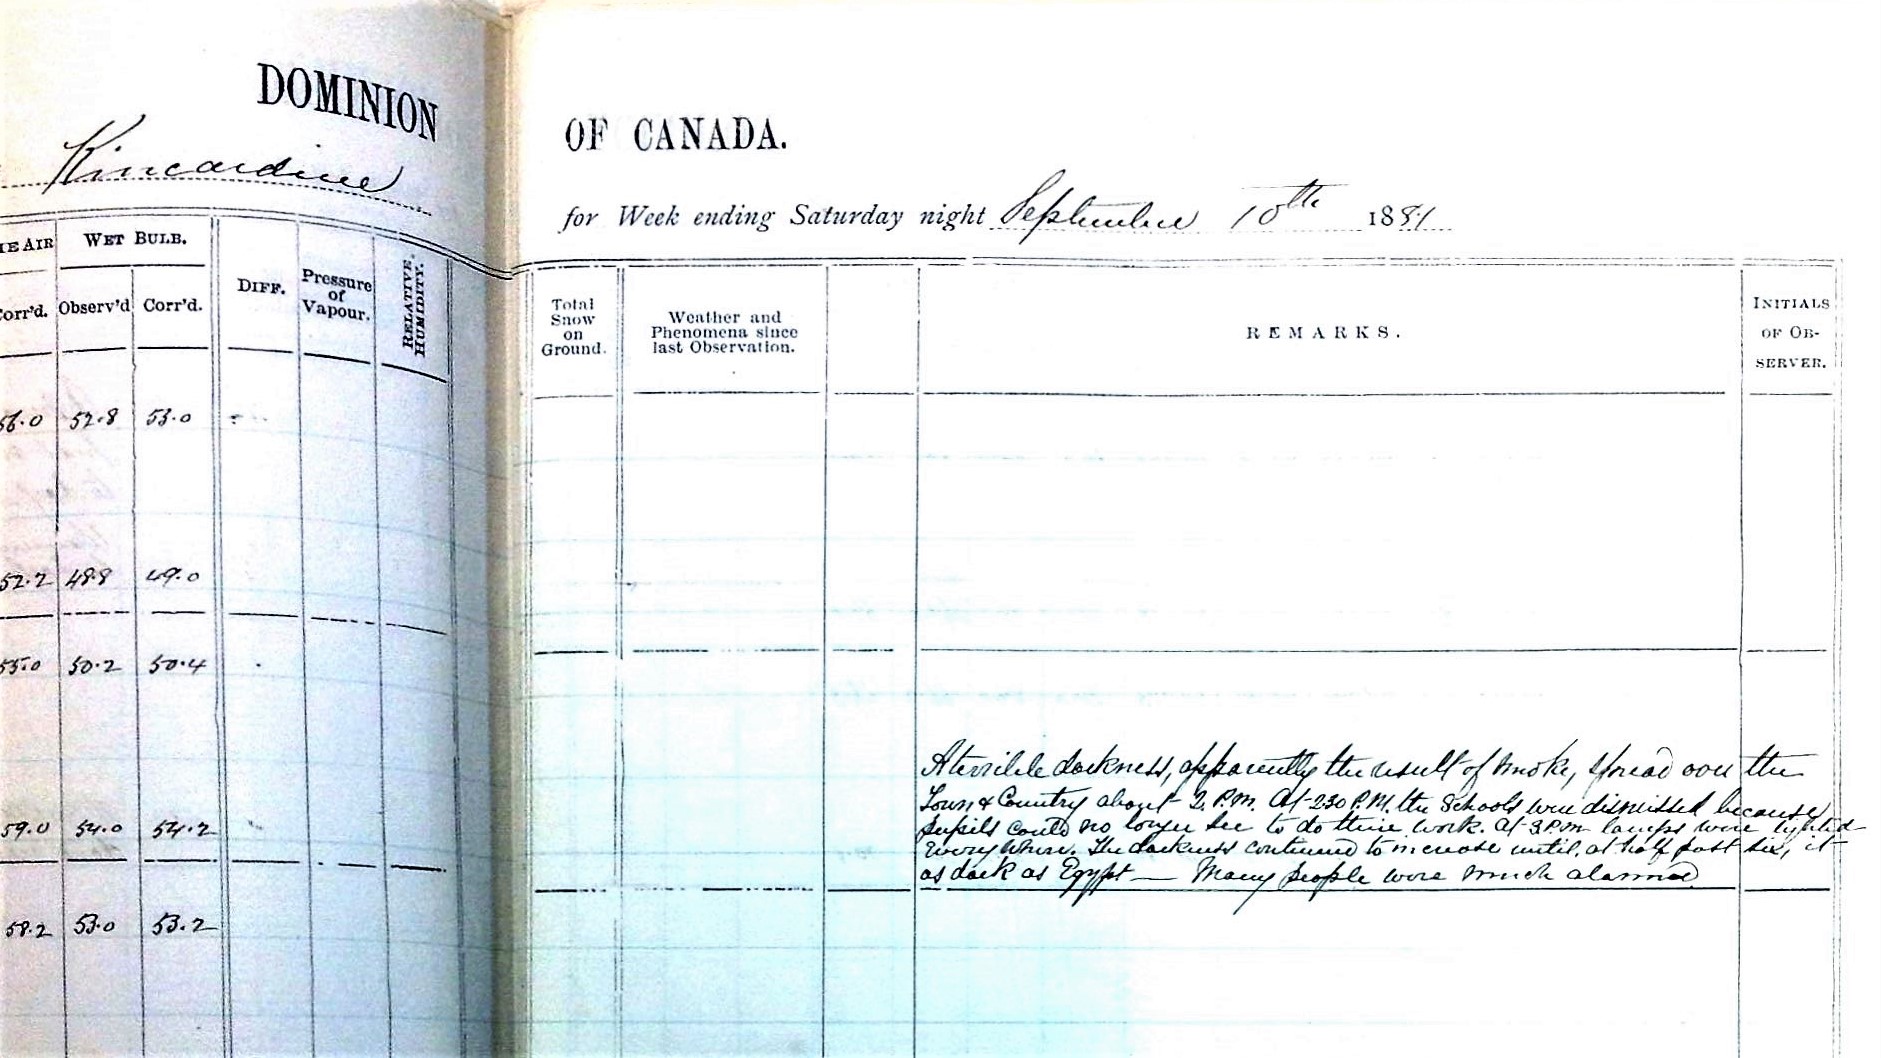 DOMINION
OF CANADA.
Kincardine
for Week ending Saturday night September 10th 1881
HE AIR
WET BULB.
Corr'd.
Observ'd
Corr'd.
DIFF.
Pressure
of
Vapour.
RELATIVE
HUMIDITY.
Total
Snow
on
Ground.
Weather and
Phenomena since
last Observation.
REMARKS.
INITIALS
OF OB-
SERVER.
56.0 52.8 53.0
52.2 48.8 49.0
55.0 50.2 50.4
59.0 54.0 54.2
58.2 53.0 53.2
A terrible darkness, apparently the result of smoke, spread over the
Town & Country about 2 P.M. At 2 30 P.M. the Schools were dismissed because
pupils could no longer see to do their work. At 3 P.M. lamps were lighted
every where. The darkness continued to increase until, at half past six, it
as dark as Egypt — Many people were much alarmed